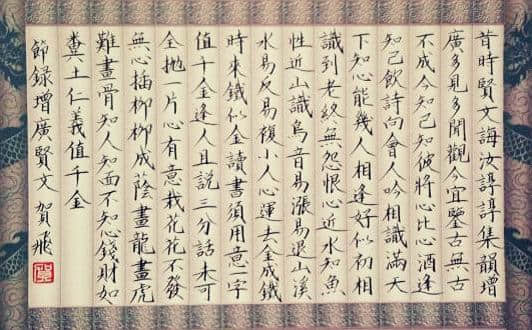 昔時賢文誨汝諄諄集韻增
廣多見多聞觀今宜鑒古無古
不成今知己知彼將心比心酒逢
知己飲詩向會人吟相識滿天
下知心能幾人相逢好似初相
識到老終無怨恨心近水知魚
性近山識鳥音易漲易退山溪
水易反易復小人心運去金成鐵
時來鐵似金讀書須用意一字
值千金逢人且說三分話未可
全拋一片心有意栽花花不發
無心插柳柳成蔭畫龍畫虎
難畫骨知人知面不知心錢財如
糞土仁義值千金
節錄增廣賢文 賀飛